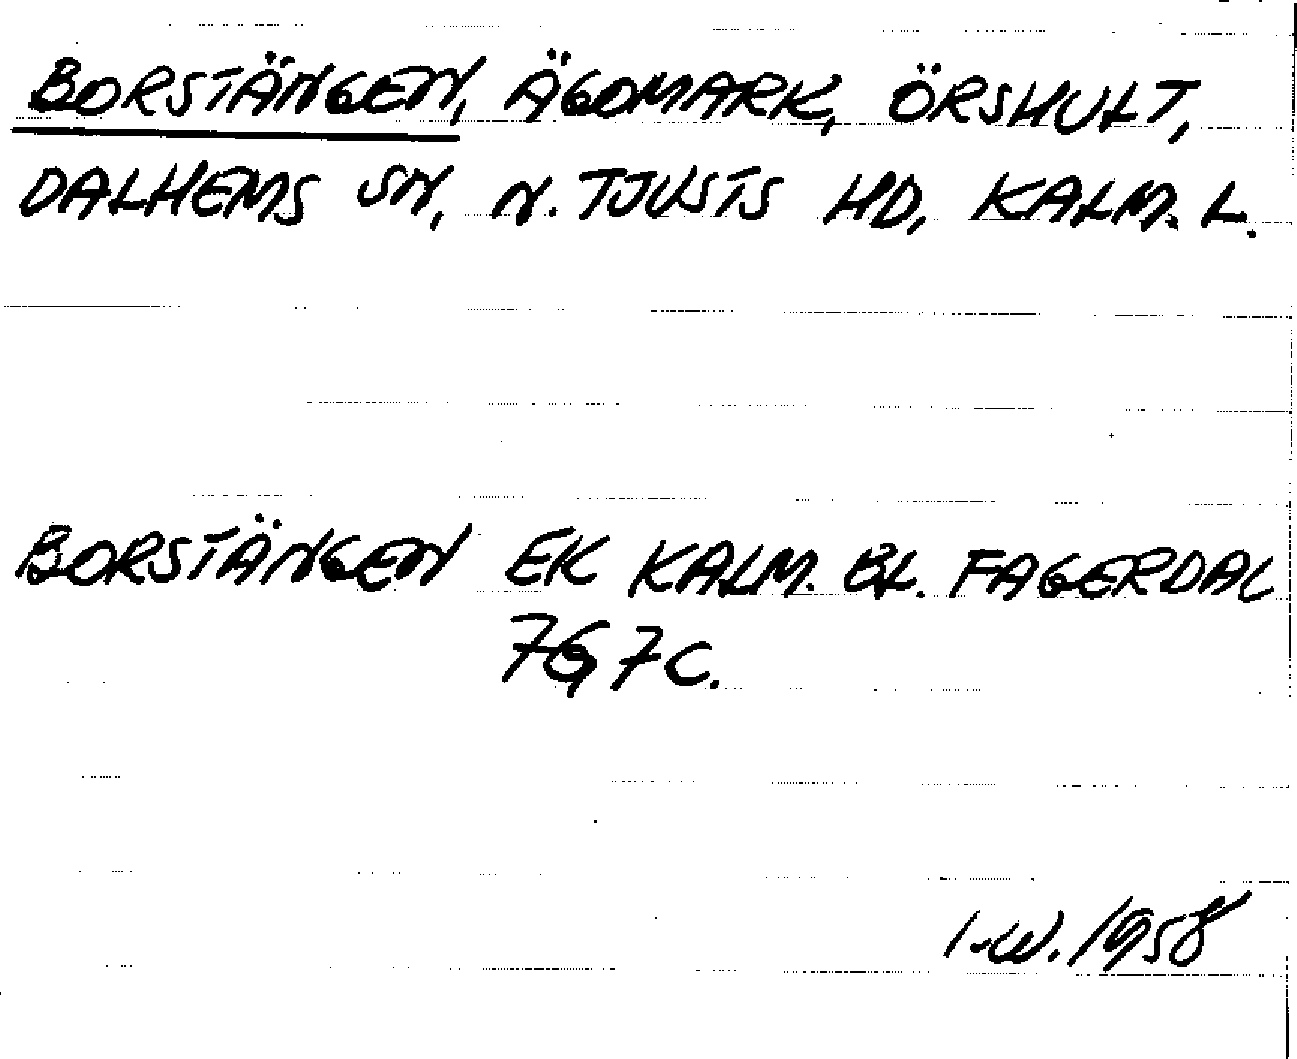 BORSTÄNGEN, ÄGOMARK, ÖRSHULT,
DALHEMS SN, N. TJUSTS HD, KALM. L.
BORSTÄNGEN EK KALM. BL. FAGERDAL
7G 7C.
I-W. 1958